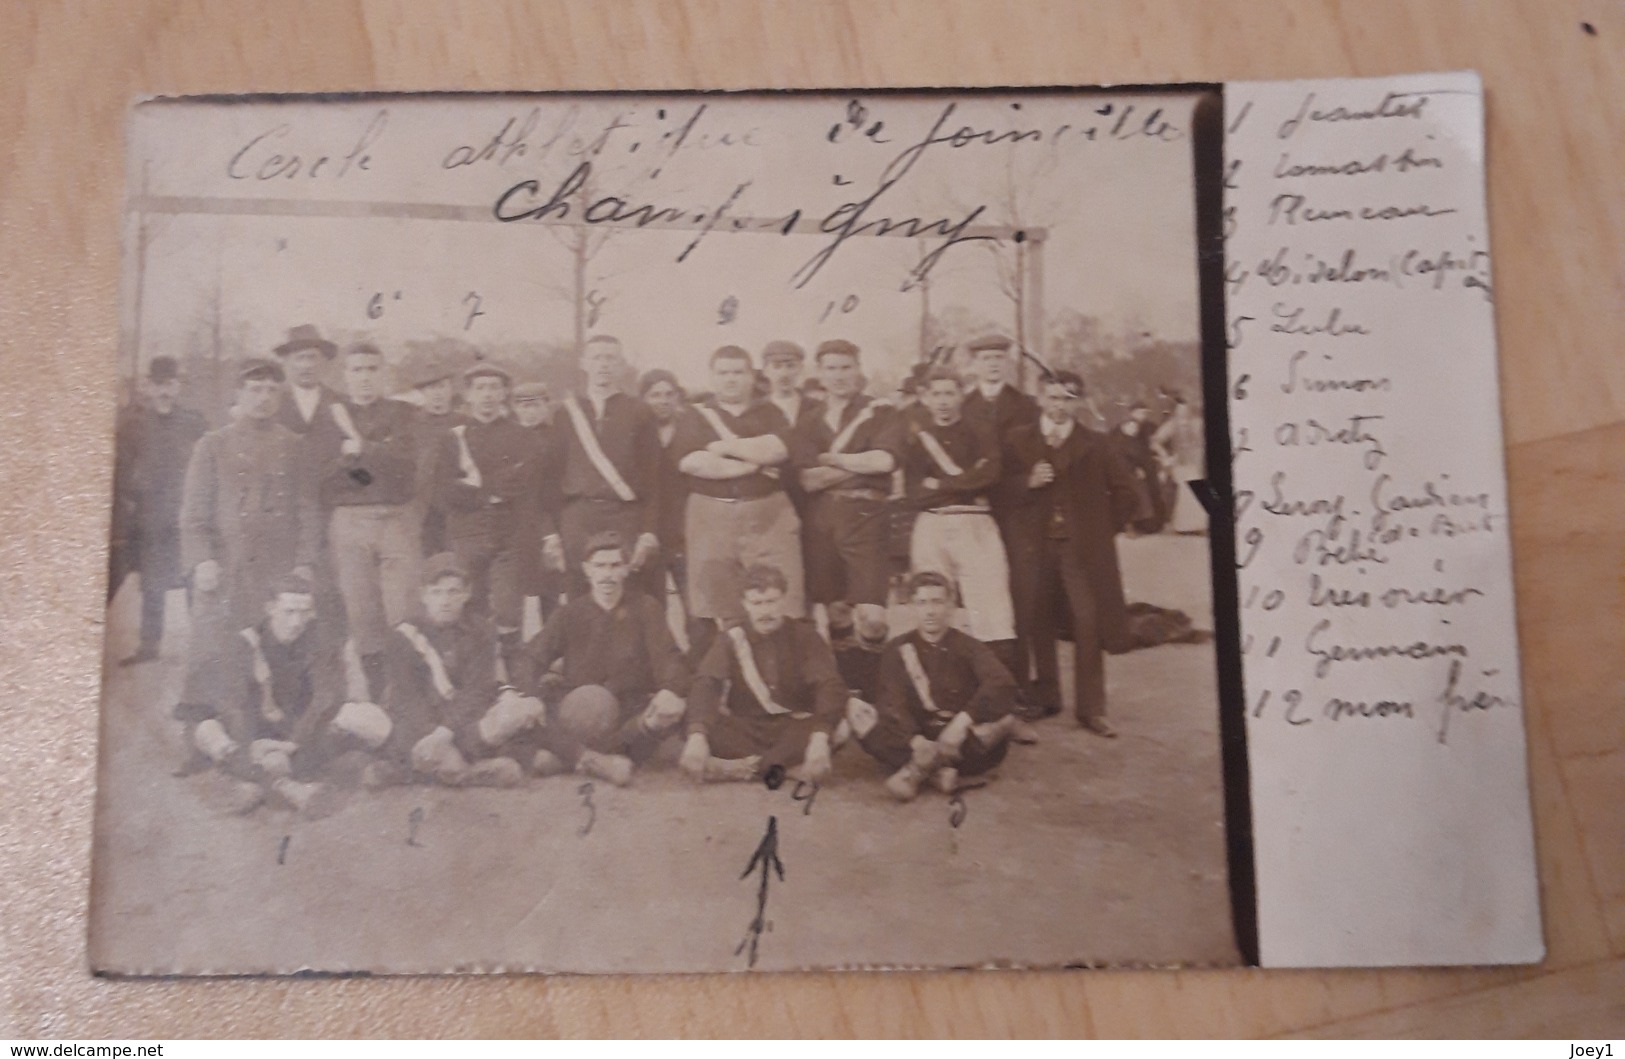 Cercle athletique de Joinville
Champigny.
6 7 8 9 10
11
1 2 3 4 5
1 Jeantet
2
3
4 (Capit
5 Lulu
6 Simon
7
8 Leroy. Gardien
de But
9 Bébé
10 Trésorier
11 Germain
12 mon frère
www.delcampe.net
Joey1